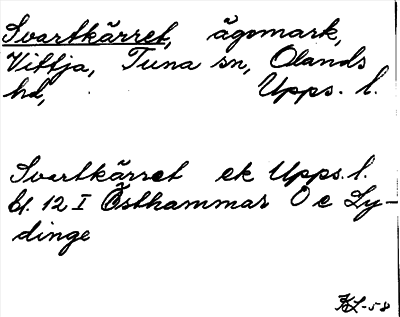 Svartkärret, ägomark,
Vittja, Tuna sn, Olands
hd, Upps. l.
Svartkärret ek Upps. l.
bl. 12 I Östhammar O e Ly-
dinge
KL-58